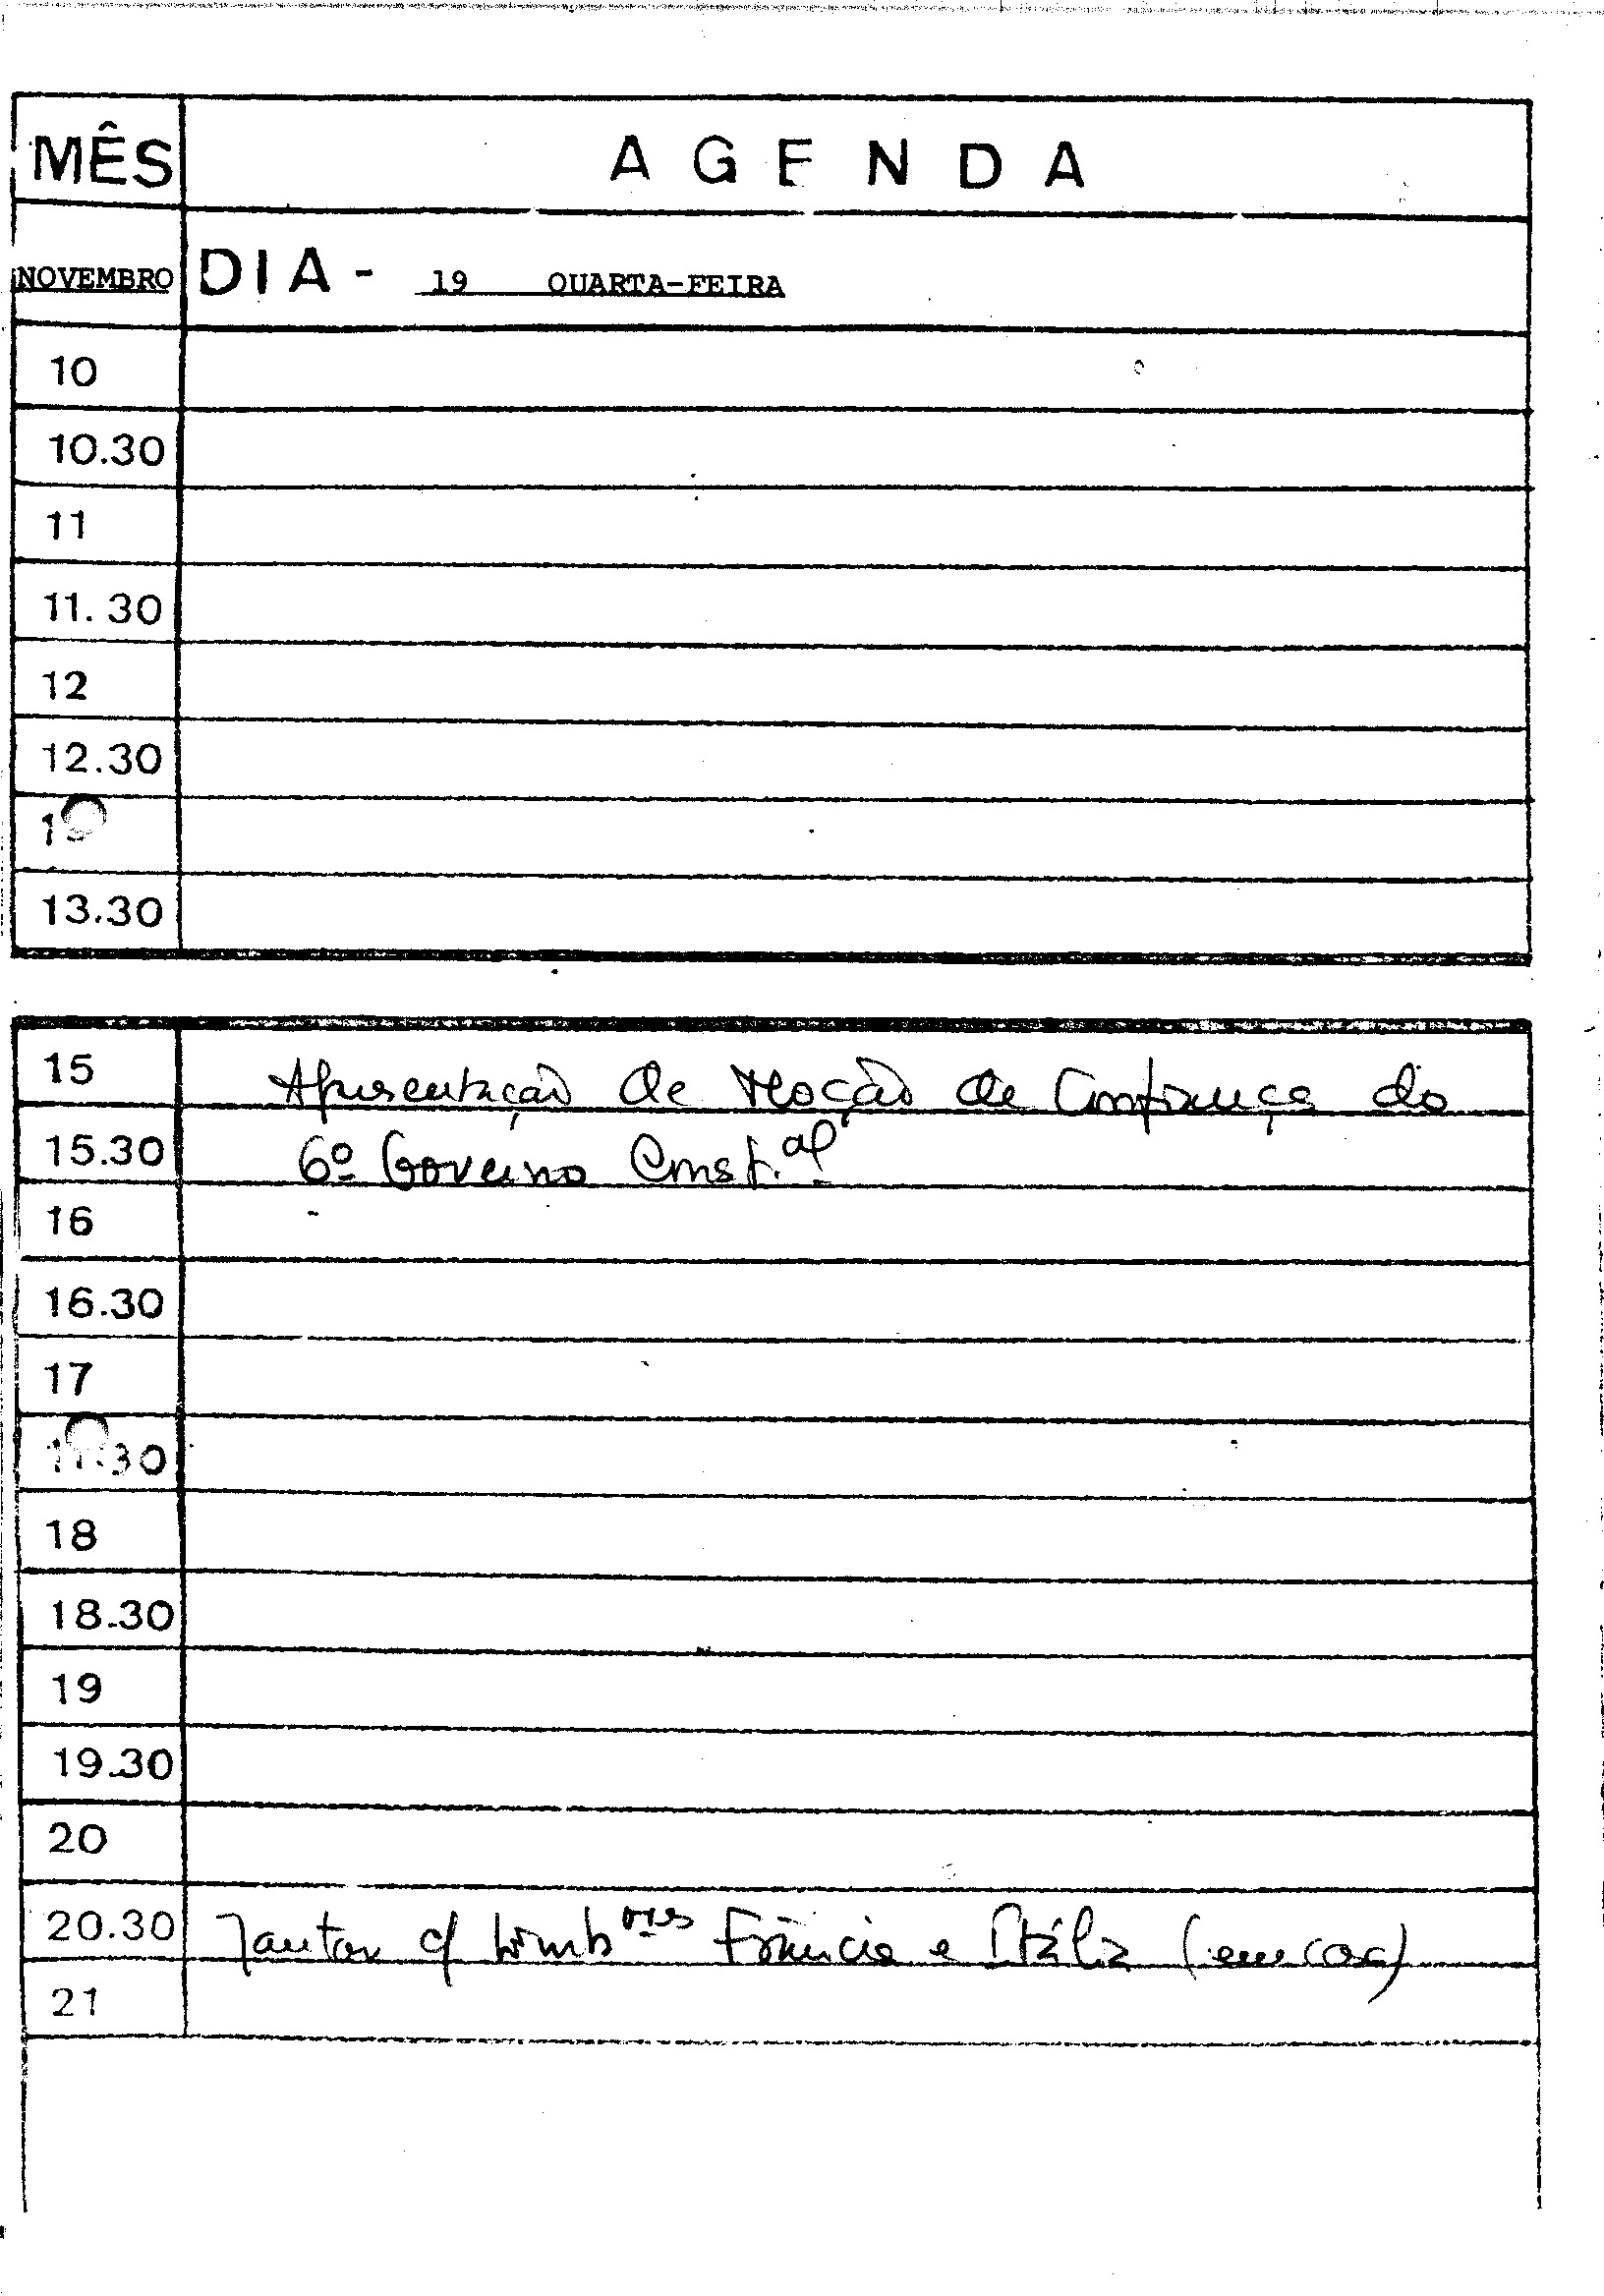 MÊS AGENDA
NOVEMBRO DIA - 19 QUARTA-FEIRA
10
10.30
11
11.30
12
12.30
1
13.30
15 Apresentação de Moção de Confiança do
15.30 6º Governo Const.al
16
16.30
17
17.30
18
18.30
19
19.30
20
20.30 Jantar c/ França e Itália (em casa)
21